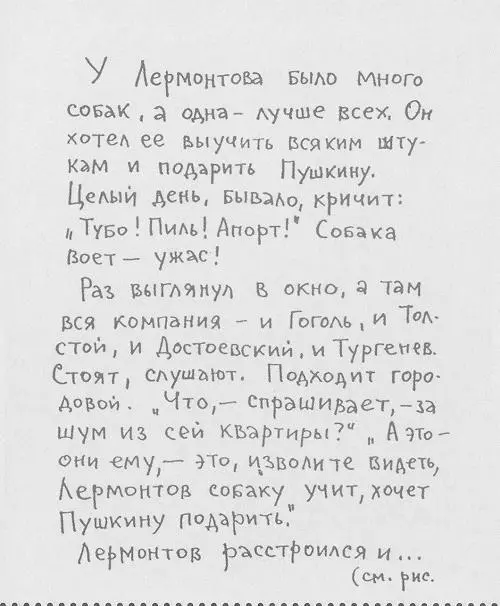 У Лермонтова было много
собак, а одна – лучше всех. Он
хотел ее выучить всяким шту-
кам и подарить Пушкину.
Целый день, бывало, кричит:
„Тубо! Пиль! Апорт!" Собака
воет – ужас!
Раз выглянул в окно, а там
вся компания – и Гоголь, и Тол-
стой, и Достоевский, и Тургенев.
Стоят, слушают. Подходит горо-
довой. „Что, – спрашивает, – за
шум из сей квартиры?" „А это –
они ему, – это, изволите видеть,
Лермонтов собаку учит, хочет
Пушкину подарить."
Лермонтов расстроился и...
(см. рис.